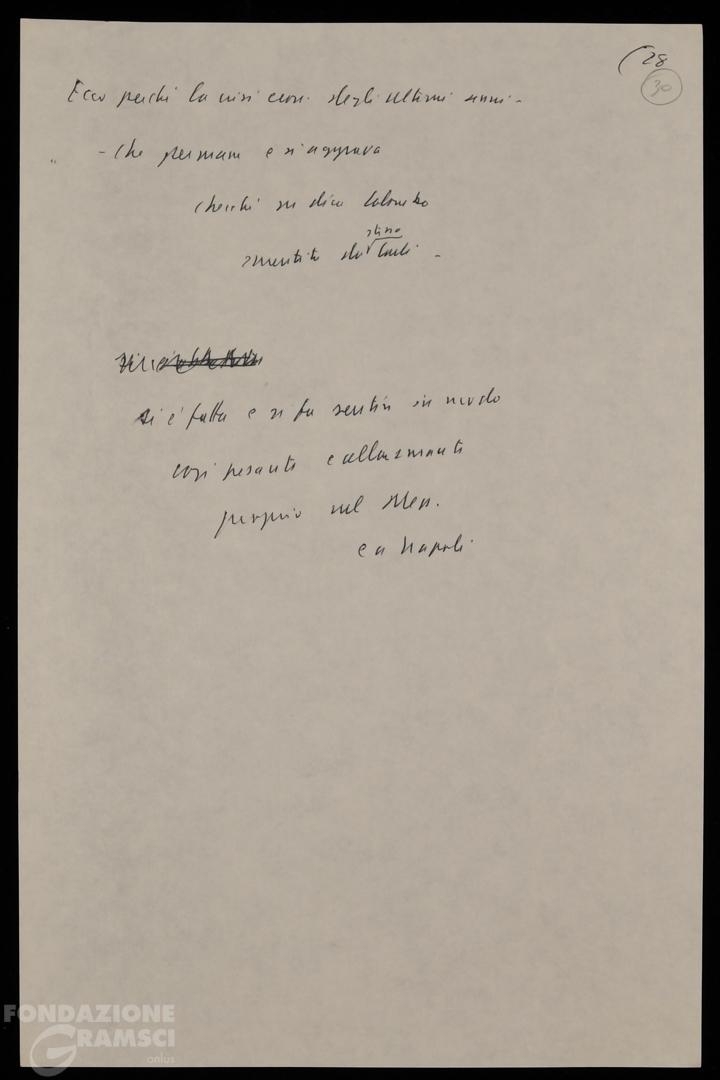 (28
30
Ecco perché la crisi econ. degli ultimi anni -
- che permane e si aggrava
checché ne dica Colombo
stesso
smentito da Carli -
si è fatta e si fa sentire in modo
così pesante e allarmante
proprio nel Mez.
e a Napoli
FONDAZIONE
GRAMSCI
onlus